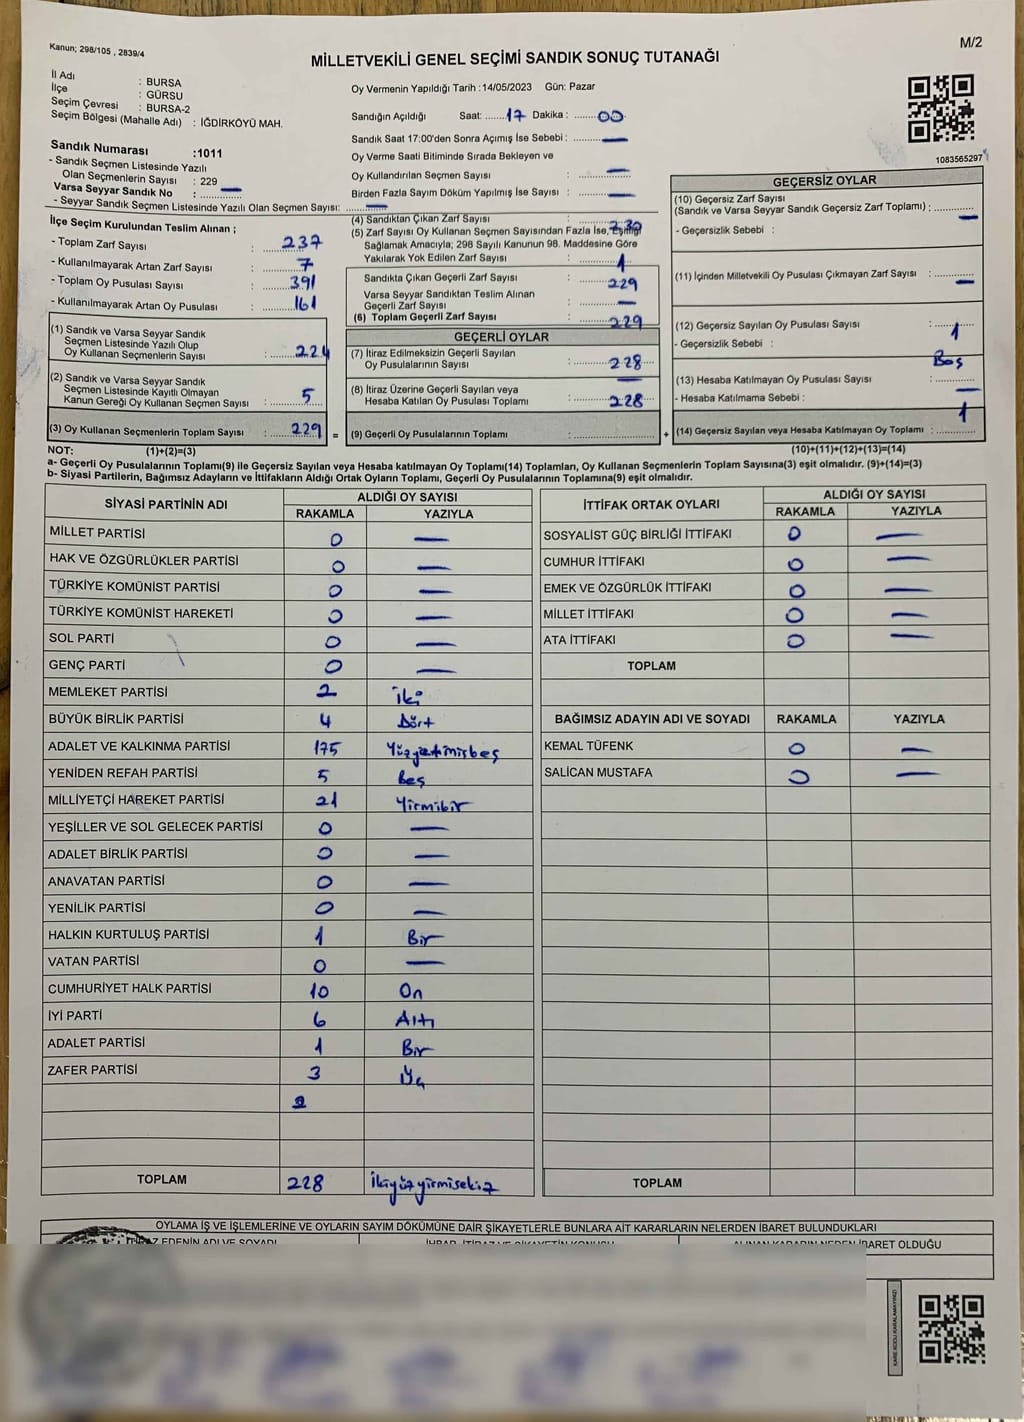 Kanun; 298/105 , 2839/4
M/2
MİLLETVEKİLİ GENEL SEÇİMİ SANDIK SONUÇ TUTANAĞI
İl Adı : BURSA
İlçe : GÜRSU
Seçim Çevresi : BURSA-2
Seçim Bölgesi (Mahalle Adı) : İĞDİRKÖYÜ MAH.
Oy Vermenin Yapıldığı Tarih :14/05/2023 Gün: Pazar
Sandığın Açıldığı Saat: 17 Dakika : 00
Sandık Saat 17:00'den Sonra Açımış İse Sebebi : —
Oy Verme Saati Bitiminde Sırada Bekleyen ve
Oy Kullandırılan Seçmen Sayısı : —
Birden Fazla Sayım Döküm Yapılmış İse Sayısı : —
1083565297
Sandık Numarası :1011
- Sandık Seçmen Listesinde Yazılı
Olan Seçmenlerin Sayısı : 229
Varsa Seyyar Sandık No : —
- Seyyar Sandık Seçmen Listesinde Yazılı Olan Seçmen Sayısı: —
İlçe Seçim Kurulundan Teslim Alınan ;
- Toplam Zarf Sayısı : 237
- Kullanılmayarak Artan Zarf Sayısı : 7
- Toplam Oy Pusulası Sayısı : 391
- Kullanılmayarak Artan Oy Pusulası : 161
(1) Sandık ve Varsa Seyyar Sandık
Seçmen Listesinde Yazılı Olup
Oy Kullanan Seçmenlerin Sayısı : 224
(2) Sandık ve Varsa Seyyar Sandık
Seçmen Listesinde Kayıtlı Olmayan
Kanun Gereği Oy Kullanan Seçmen Sayısı : 5
(3) Oy Kullanan Seçmenlerin Toplam Sayısı : 229 =
(4) Sandıktan Çıkan Zarf Sayısı : 230
(5) Zarf Sayısı Oy Kullanan Seçmen Sayısından Fazla İse, Eşitliği
Sağlamak Amacıyla; 298 Sayılı Kanunun 98. Maddesine Göre
Yakılarak Yok Edilen Zarf Sayısı : 1
Sandıkta Çıkan Geçerli Zarf Sayısı : 229
Varsa Seyyar Sandıktan Teslim Alınan
Geçerli Zarf Sayısı : —
(6) Toplam Geçerli Zarf Sayısı : 229
GEÇERLİ OYLAR
(7) İtiraz Edilmeksizin Geçerli Sayılan
Oy Pusulalarının Sayısı : 228
(8) İtiraz Üzerine Geçerli Sayılan veya
Hesaba Katılan Oy Pusulası Toplamı : —
228
(9) Geçerli Oy Pusulalarının Toplamı : +
GEÇERSİZ OYLAR
(10) Geçersiz Zarf Sayısı
(Sandık ve Varsa Seyyar Sandık Geçersiz Zarf Toplamı) : —
- Geçersizlik Sebebi :
(11) İçinden Milletvekili Oy Pusulası Çıkmayan Zarf Sayısı : —
(12) Geçersiz Sayılan Oy Pusulası Sayısı : 1
- Geçersizlik Sebebi : Boş
(13) Hesaba Katılmayan Oy Pusulası Sayısı : —
- Hesaba Katılmama Sebebi :
(14) Geçersiz Sayılan veya Hesaba Katılmayan Oy Toplamı : 1
NOT: (1)+(2)=(3) (10)+(11)+(12)+(13)=(14)
a- Geçerli Oy Pusulalarının Toplamı(9) ile Geçersiz Sayılan veya Hesaba katılmayan Oy Toplamı(14) Toplamları, Oy Kullanan Seçmenlerin Toplam Sayısına(3) eşit olmalıdır. (9)+(14)=(3)
b- Siyasi Partilerin, Bağımsız Adayların ve İttifakların Aldığı Ortak Oyların Toplamı, Geçerli Oy Pusulalarının Toplamına(9) eşit olmalıdır.
SİYASİ PARTİNİN ADI ALDIĞI OY SAYISI
RAKAMLA YAZIYLA
MİLLET PARTİSİ 0 —
HAK VE ÖZGÜRLÜKLER PARTİSİ 0 —
TÜRKİYE KOMÜNİST PARTİSİ 0 —
TÜRKİYE KOMÜNİST HAREKETİ 0 —
SOL PARTİ 0 —
GENÇ PARTİ 0 —
MEMLEKET PARTİSİ 2 iki
BÜYÜK BİRLİK PARTİSİ 4 Dört
ADALET VE KALKINMA PARTİSİ 175 Yüzyetmişbeş
YENİDEN REFAH PARTİSİ 5 Beş
MİLLİYETÇİ HAREKET PARTİSİ 21 Yirmibir
YEŞİLLER VE SOL GELECEK PARTİSİ 0 —
ADALET BİRLİK PARTİSİ 0 —
ANAVATAN PARTİSİ 0 —
YENİLİK PARTİSİ 0 —
HALKIN KURTULUŞ PARTİSİ 1 Bir
VATAN PARTİSİ 0 —
CUMHURİYET HALK PARTİSİ 10 On
İYİ PARTİ 6 Altı
ADALET PARTİSİ 1 Bir
ZAFER PARTİSİ 3 Üç
TOPLAM 228 ikiyüzyirmisekiz
İTTİFAK ORTAK OYLARI ALDIĞI OY SAYISI
RAKAMLA YAZIYLA
SOSYALİST GÜÇ BİRLİĞİ İTTİFAKI 0 —
CUMHUR İTTİFAKI 0 —
EMEK VE ÖZGÜRLÜK İTTİFAKI 0 —
MİLLET İTTİFAKI 0 —
ATA İTTİFAKI 0 —
TOPLAM
BAĞIMSIZ ADAYIN ADI VE SOYADI RAKAMLA YAZIYLA
KEMAL TÜFENK 0 —
SALİCAN MUSTAFA 0 —
TOPLAM
OYLAMA İŞ VE İŞLEMLERİNE VE OYLARIN SAYIM DÖKÜMÜNE DAİR ŞİKAYETLERLE BUNLARA AİT KARARLARIN NELERDEN İBARET BULUNDUKLARI
EDENİN ADI VE SOYADI İHBAR, İTİRAZ VE ŞİKAYETİN KONUSU ALINAN KARARIN NEDEN İBARET OLDUĞU
KARE KODU KARALAMAYINIZ!